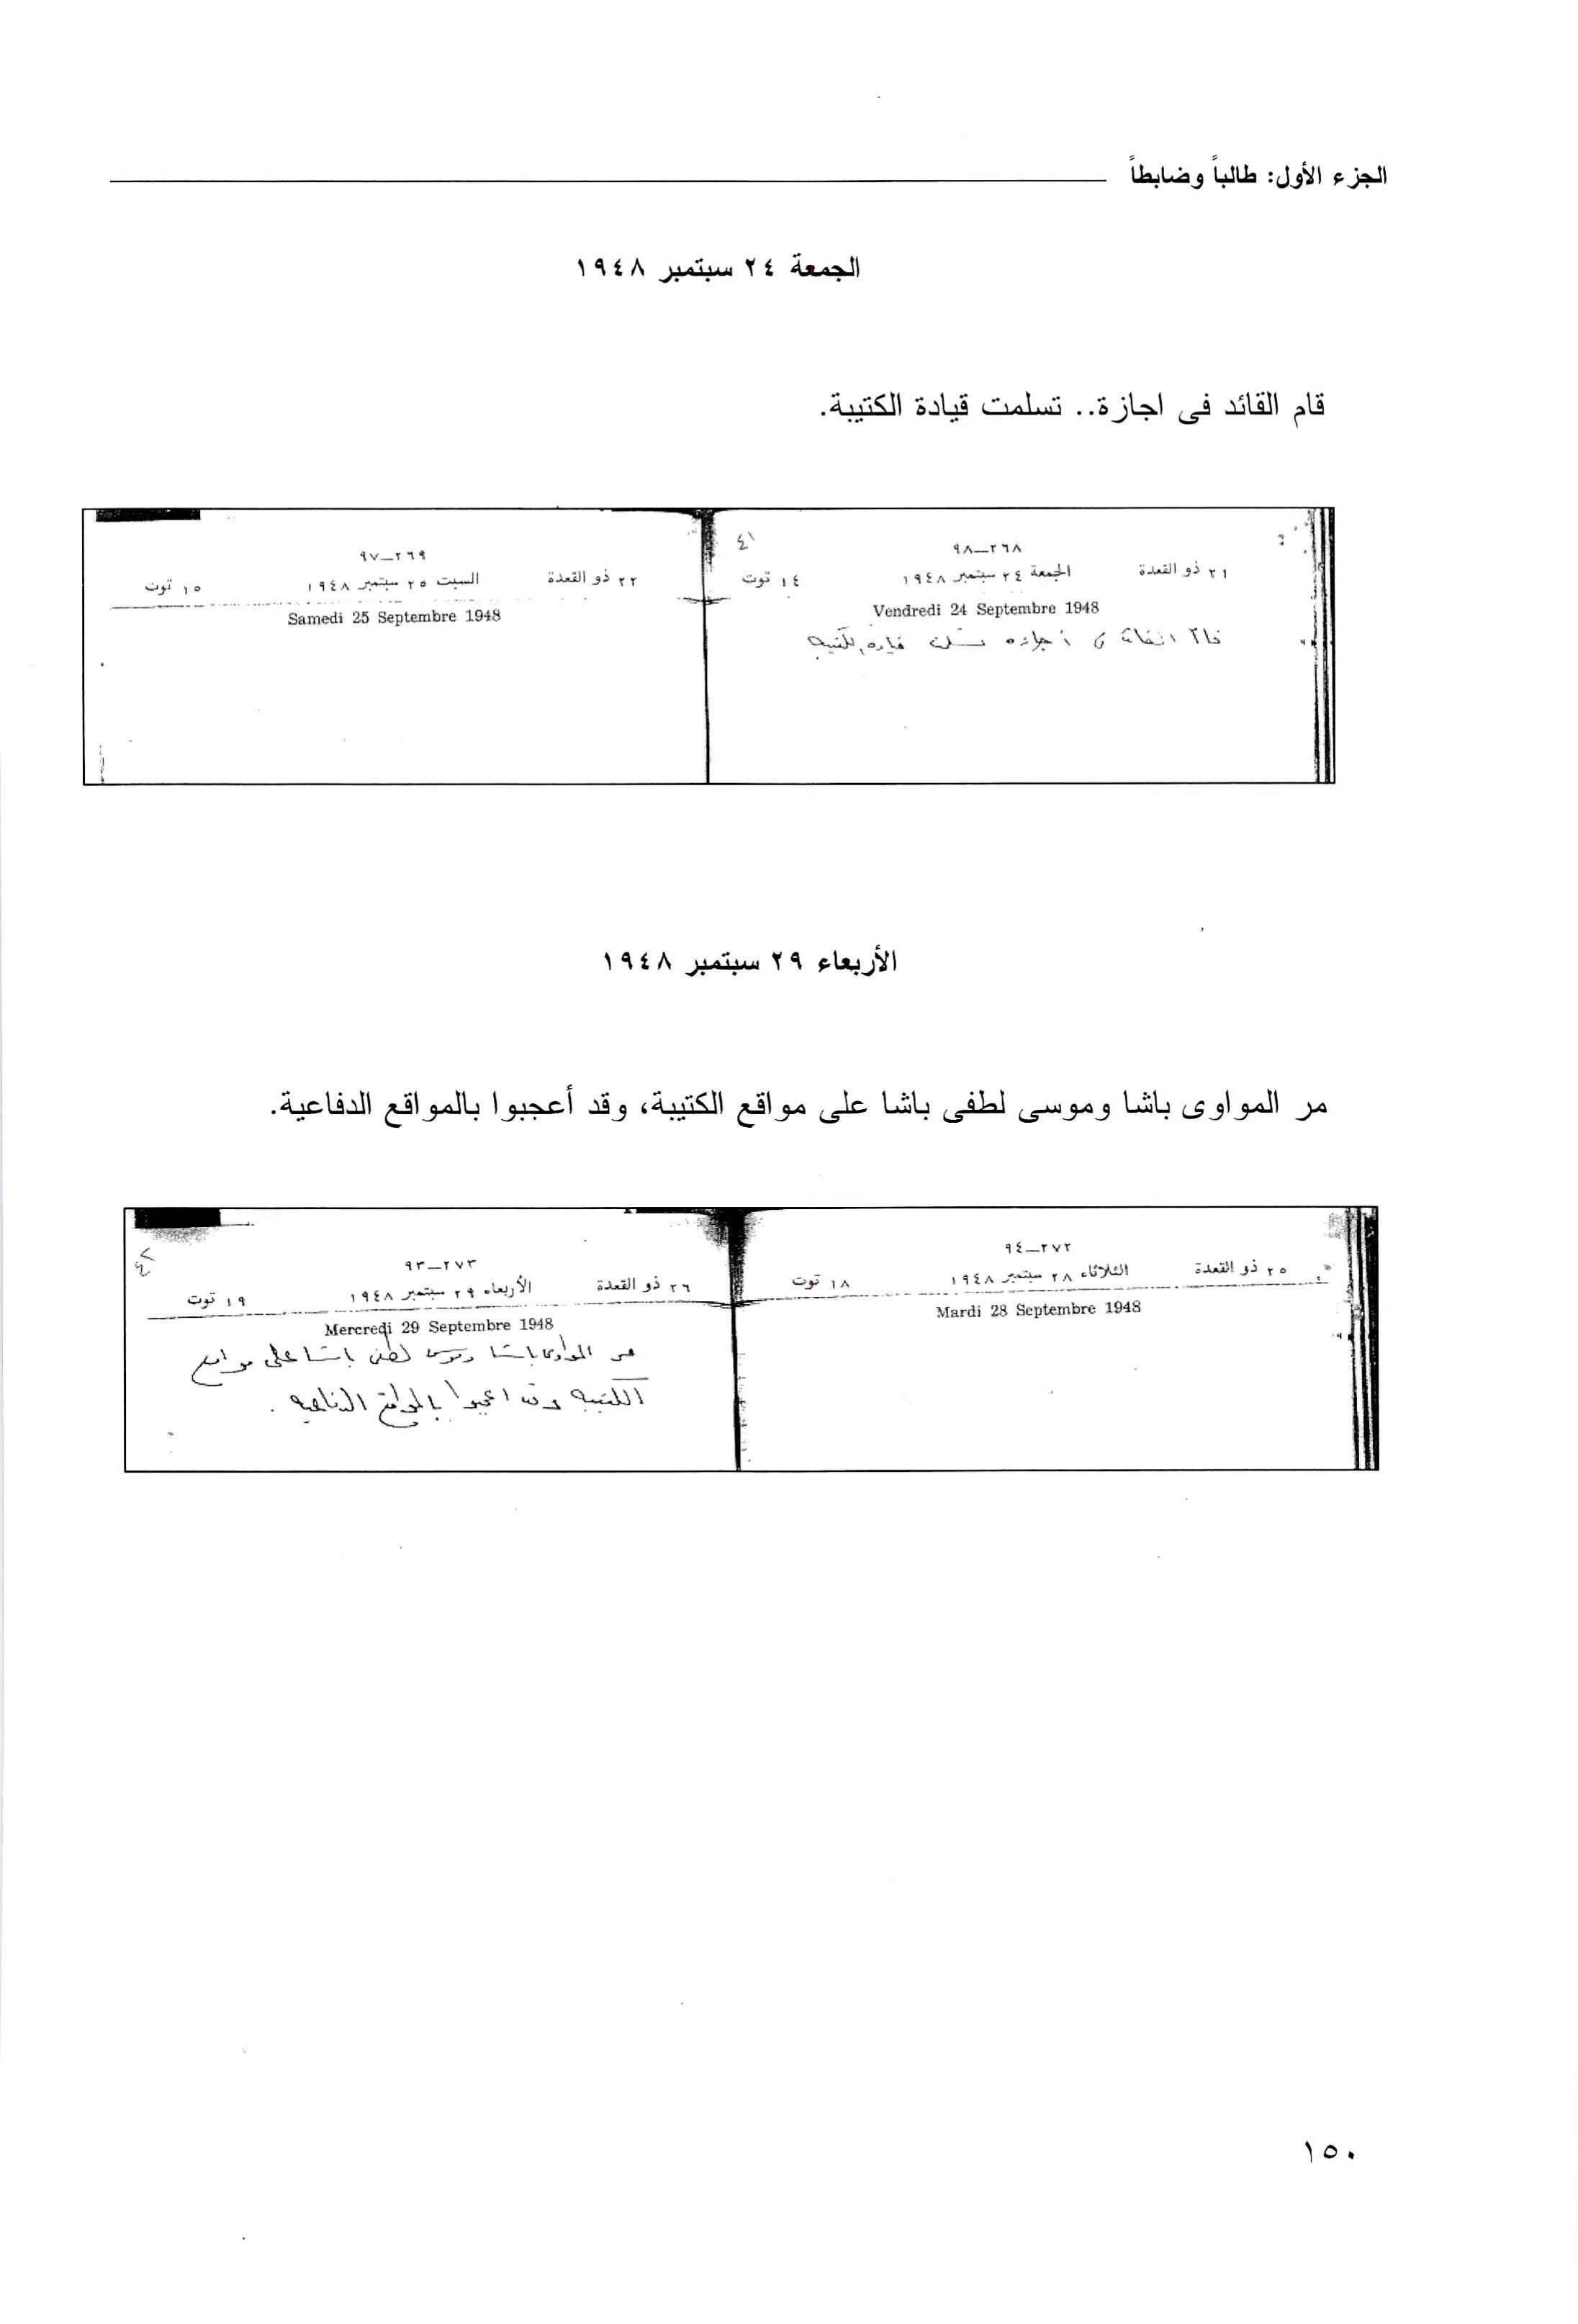 الجزء الأول: طالباً وضابطاً
الجمعة ٢٤ سبتمبر ١٩٤٨
قام القائد فى اجازة.. تسلمت قيادة الكتيبة.
٢٦٨—٩٨
٢١ ذو القعدة الجمعة ٢٤ سبتمبر ١٩٤٨ ١٤ توت
Vendredi 24 Septembre 1948
قام القائد فى أجازه تسلمت قياده الكتيبه
٢٦٩—٩٧
٢٢ ذو القعدة السبت ٢٥ سبتمبر ١٩٤٨ ١٥ توت
Samedi 25 Septembre 1948
الأربعاء ٢٩ سبتمبر ١٩٤٨
مر المواوى باشا وموسى لطفى باشا على مواقع الكتيبة، وقد أعجبوا بالمواقع الدفاعية.
٢٧٢—٩٤
٢٥ ذو القعدة الثلاثاء ٢٨ سبتمبر ١٩٤٨ ١٨ توت
Mardi 28 Septembre 1948
٢٧٣—٩٣
٢٦ ذو القعدة الأربعاء ٢٩ سبتمبر ١٩٤٨ ١٩ توت
Mercredi 29 Septembre 1948
مر المواوى باشا وموسى لطفى باشا على مواقع
الكتيبه وقد اعجبوا بالمواقع الدفاعيه .
١٥٠